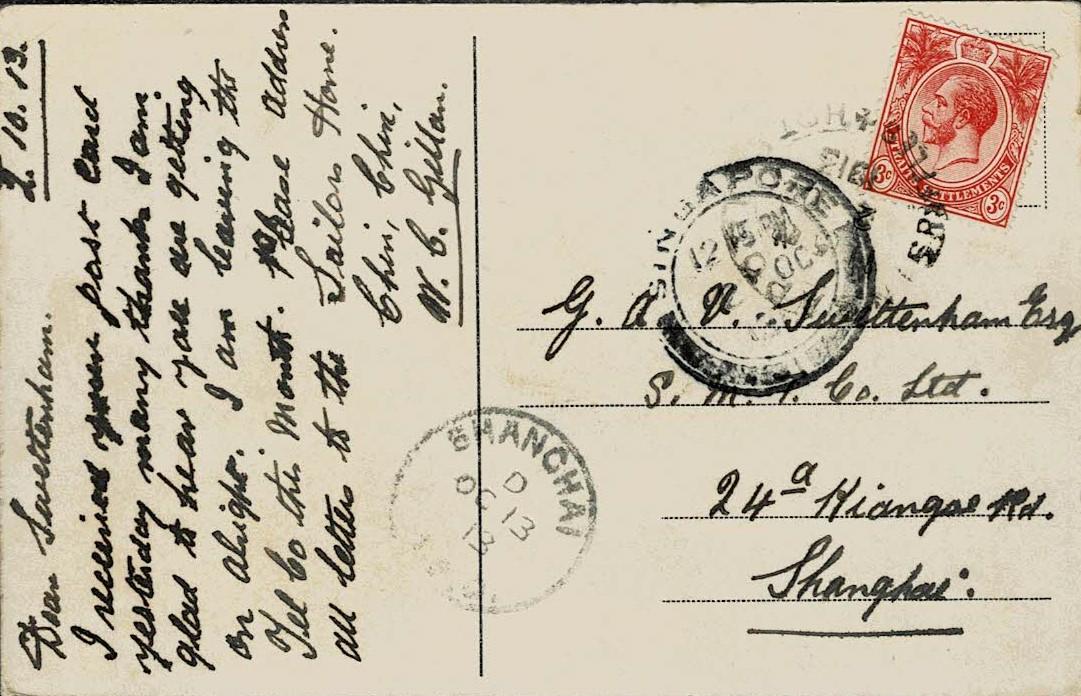 2. 10. 13.
Dear Swettenham.
I received your post card
yesterday many thanks I am
glad to hear you are getting
on alright. I am leaving the
Tel Co this Month. Please address
all letters to the Sailors Home.
Chin, Chin,
W. C. Gillan.
STRAITS SETTLEMENTS
3c 3c
SINGAPORE
12
G. A. V. Swettenham Esq
S. M. T. Co. Ltd.
24a Kiangse Rd.
Shanghai.
SHANGHAI
D
13
OC
13